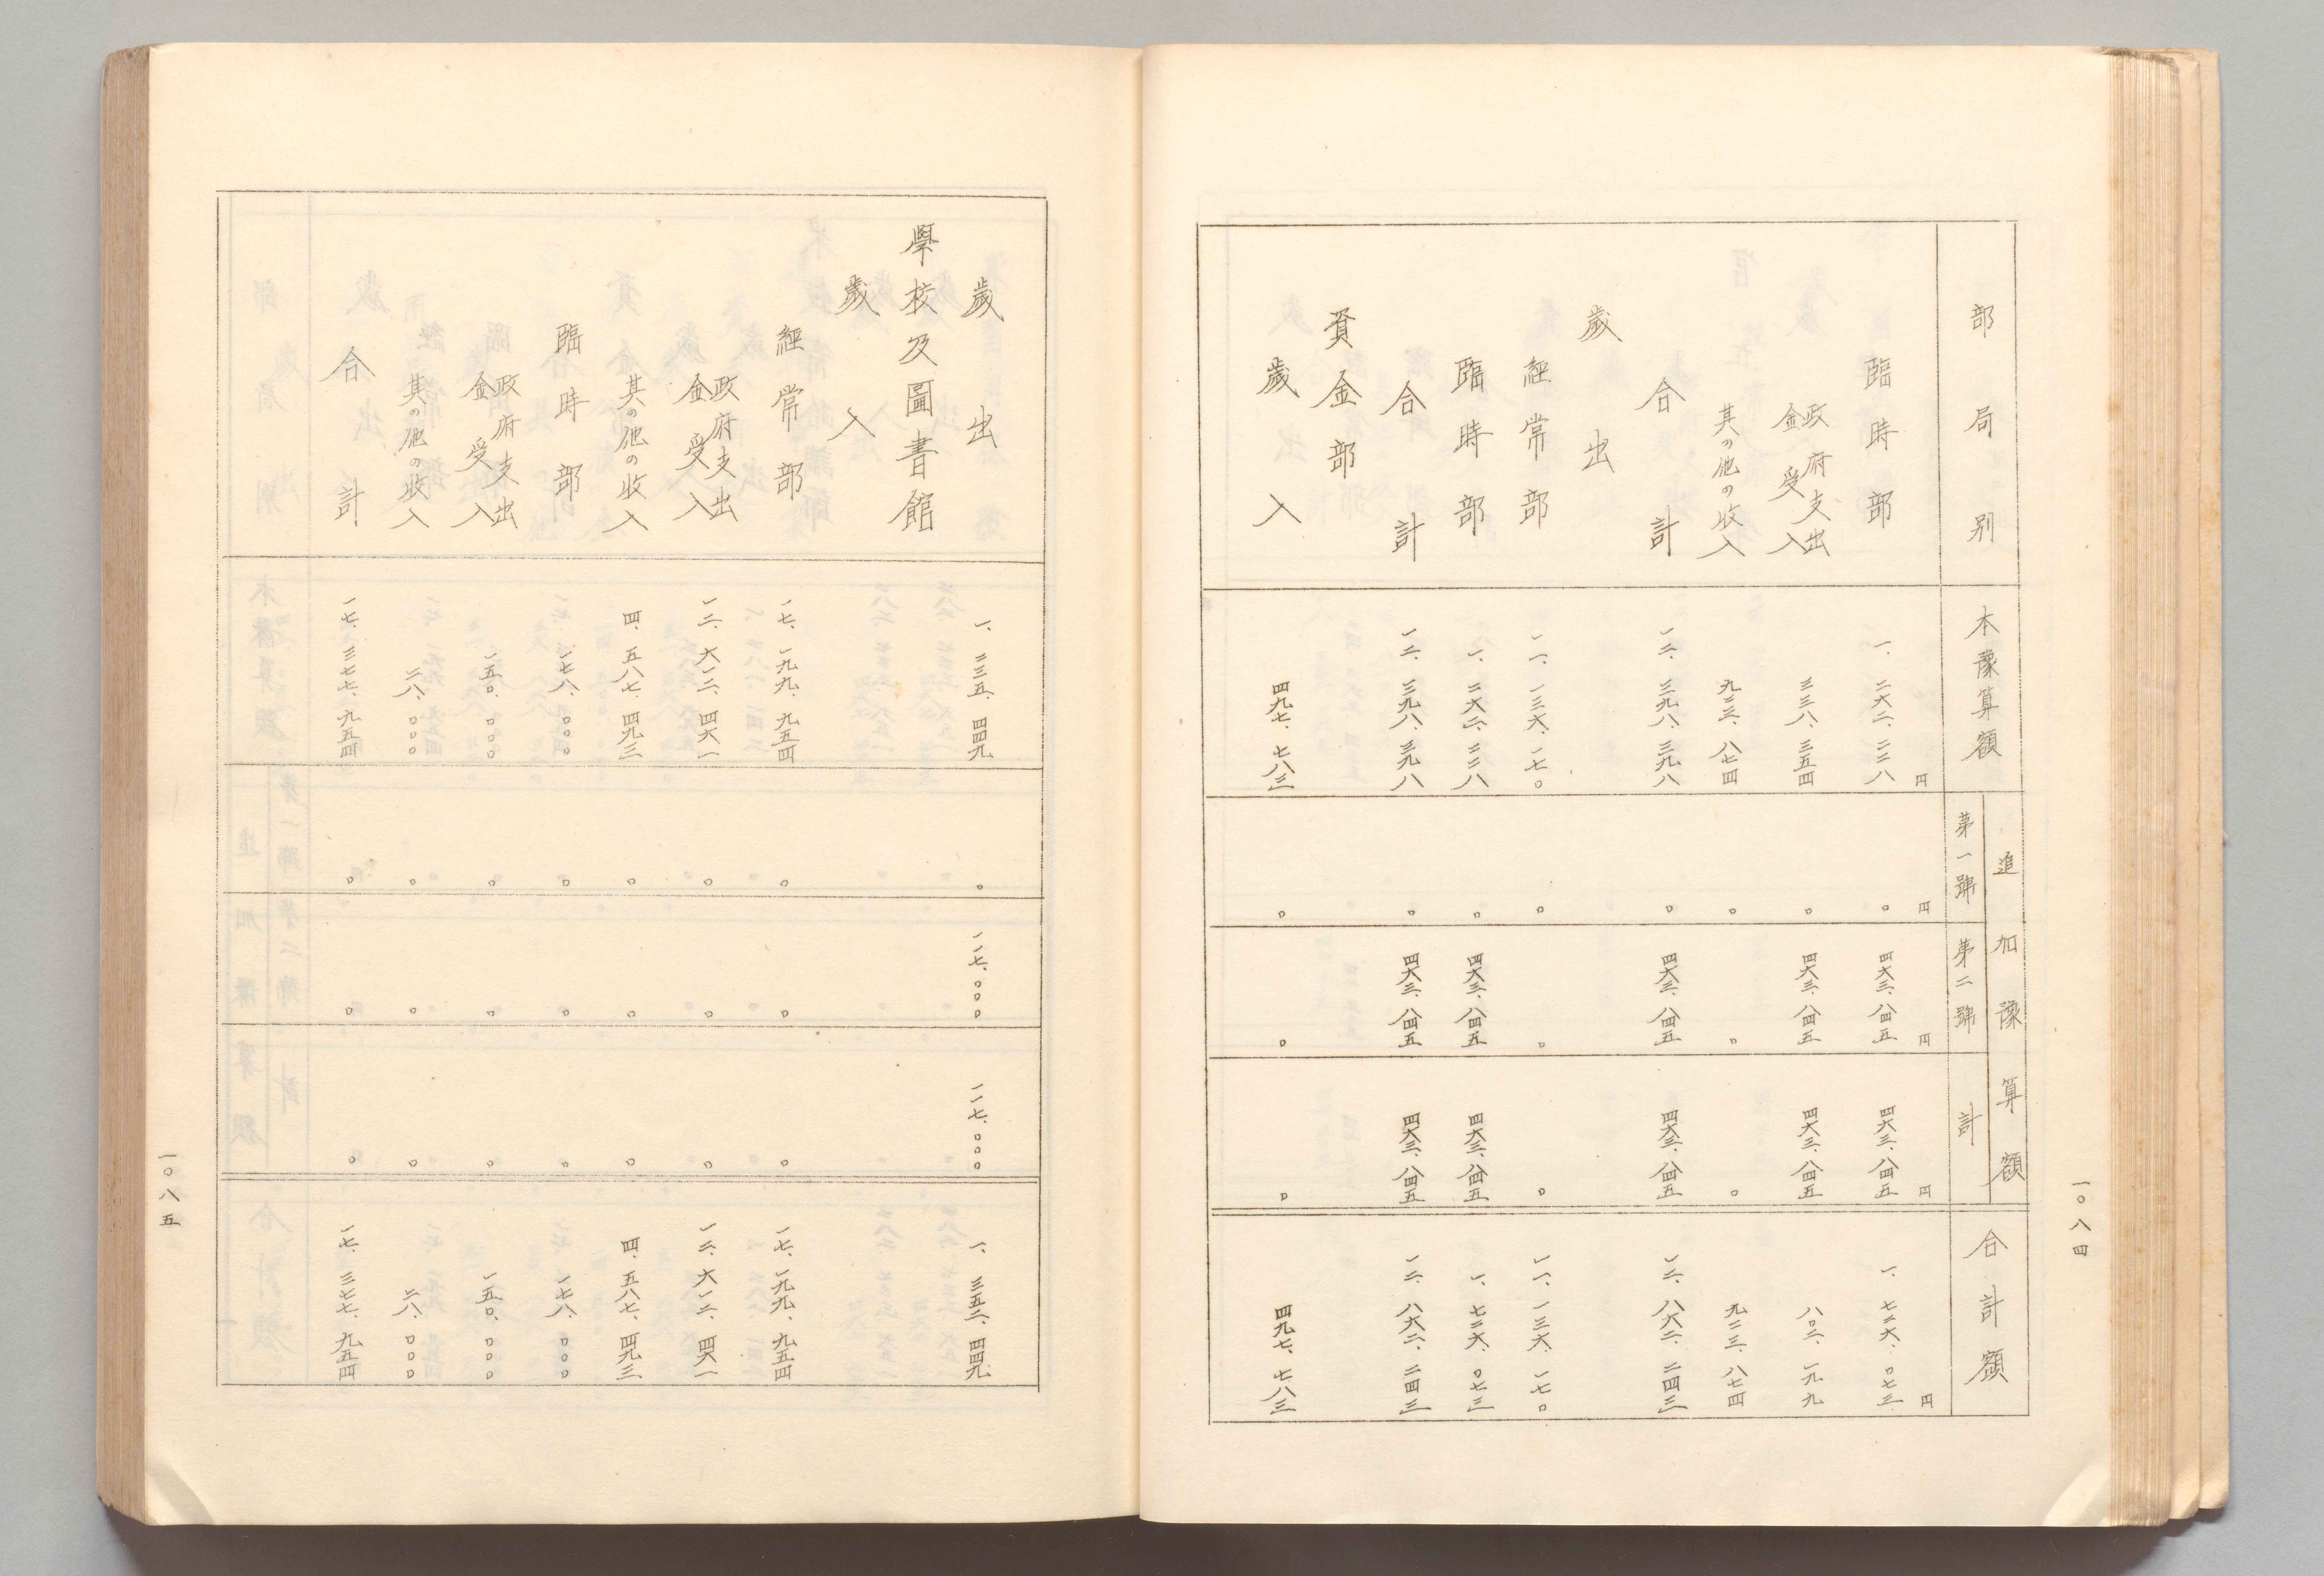 一〇八四
部局別 本豫算額 追加豫算額 第一號 第二號 計 合計額
円 円 円 円 円
臨時部 一、二六二、二二八 〇 四六三、八四五 四六三、八四五 一、七二六、〇七三
政府支出金受入 三三八、三五四 〇 四六三、八四五 四六三、八四五 八〇二、一九九
其の他の收入 九二三、八七四 〇 〇 〇 九二三、八七四
合計 一二、三九八、三九八 〇 四六三、八四五 四六三、八四五 一二、八六二、二四三
歲出
經常部 一一、一三六、一七〇 〇 〇 〇 一一、一三六、一七〇
臨時部 一、二六二、二二八 〇 四六三、八四五 四六三、八四五 一、七二六、〇七三
合計 一二、三九八、三九八 〇 四六三、八四五 四六三、八四五 一二、八六二、二四三
資金部
歲入 四九七、七八三 〇 〇 〇 四九七、七八三
歲出 一、二三五、四四九 〇 一一七、〇〇〇 一一七、〇〇〇 一、三五二、四四九
學校及圖書館
歲入
經常部 一七、一九九、九五四 〇 〇 〇 一七、一九九、九五四
政府支出金受入 一二、六一二、四六一 〇 〇 〇 一二、六一二、四六一
其の他の收入 四、五八七、四九三 〇 〇 〇 四、五八七、四九三
臨時部 一七八、〇〇〇 〇 〇 〇 一七八、〇〇〇
政府支出金受入 一五〇、〇〇〇 〇 〇 〇 一五〇、〇〇〇
其の他の收入 二八、〇〇〇 〇 〇 〇 二八、〇〇〇
合計 一七、三七七、九五四 〇 〇 〇 一七、三七七、九五四
一〇八五